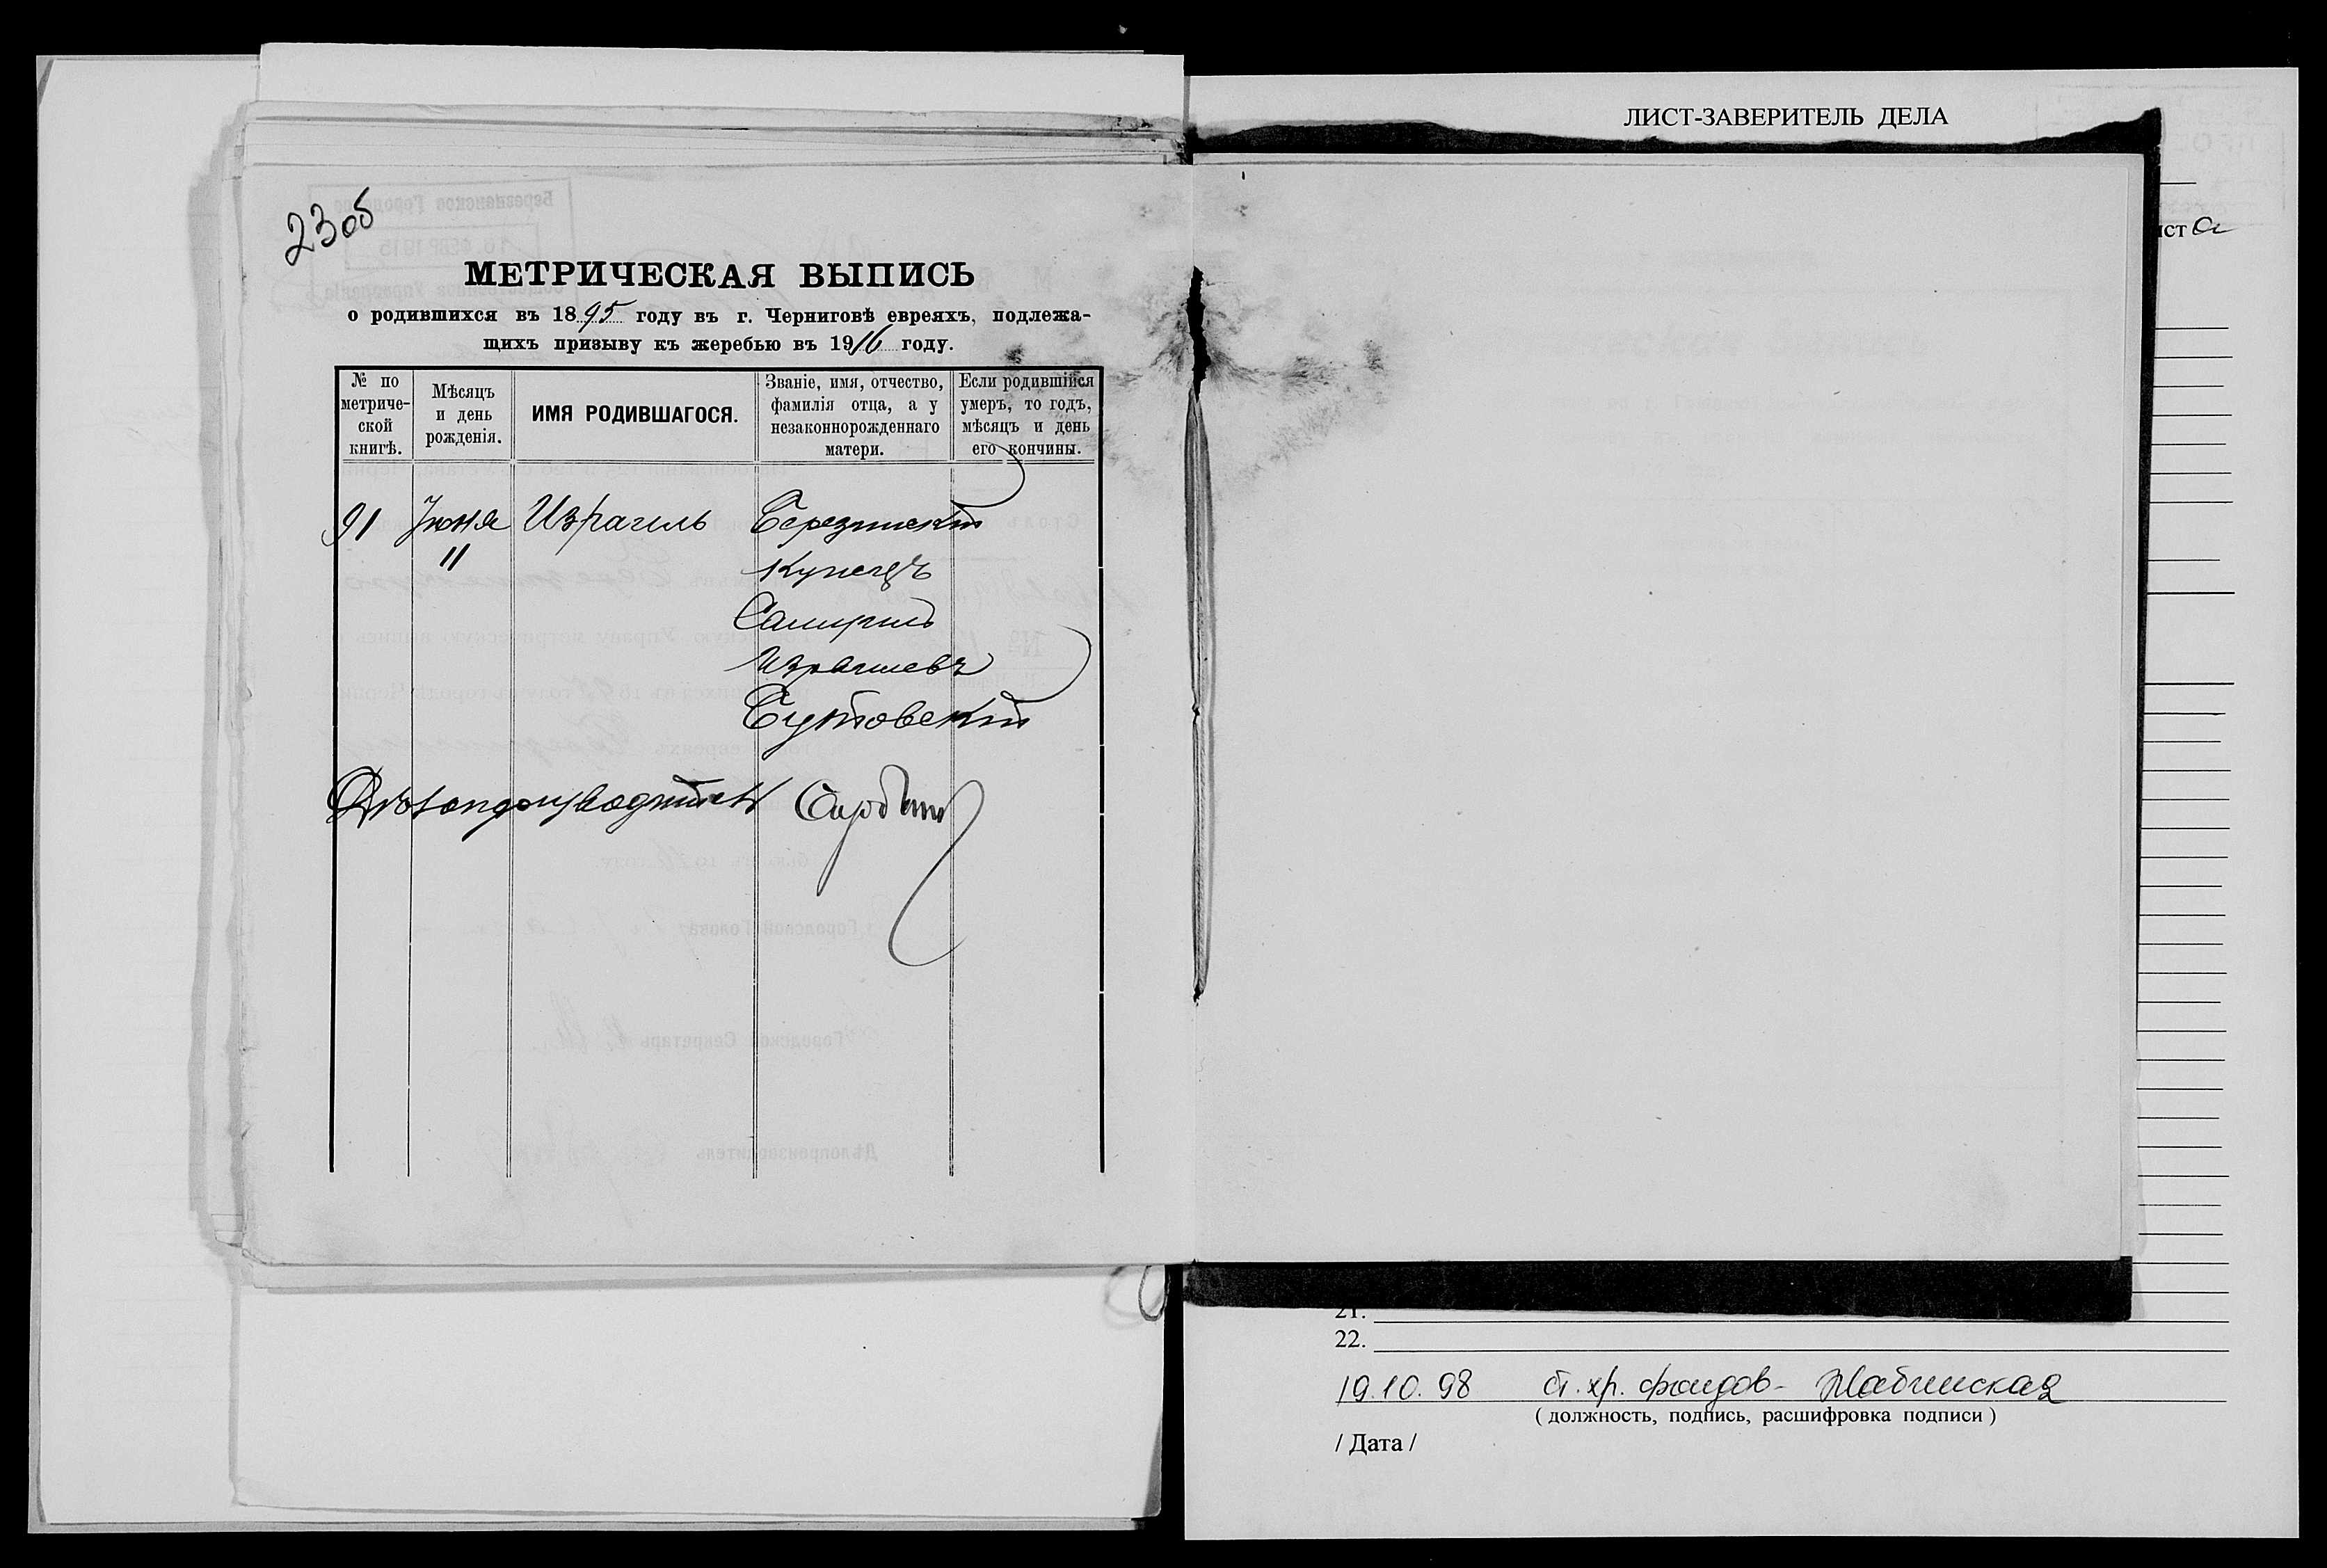 23об
МЕТРИЧЕСКАЯ ВЫПИСЬ
о родившихся въ 1895 году въ г. Черниговѣ евреяхъ, подлежа-
щихъ призыву къ жеребью въ 1916 году.
№ по метриче- ской книгѣ.
Мѣсяцъ и день рожденія.
ИМЯ РОДИВШАГОСЯ.
Званіе, имя, отчество, фамилія отца, а у незаконнорожденнаго матери.
Если родившійся умеръ, то годъ, мѣсяцъ и день его кончины.
91 Іюня Израиль Березинскій
11 Купецъ
Самуилъ
Израилевъ
Бутовскій
Дѣлопроизводитель
ЛИСТ-ЗАВЕРИТЕЛЬ ДЕЛА
ист а
21.
22.
19.10.98 ст. хр. фондов -
( должность, подпись, расшифровка подписи )
/ Дата /